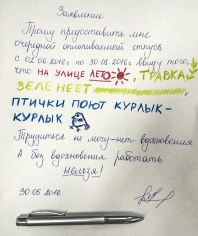 Заявление
Прошу предоставить мне
очередной оплачиваемый отпуск
с 02.06.2016г. по 30.08.2016г. ввиду того,
что НА УЛИЦЕ ЛЕТО, ТРАВКА
ЗЕЛЕНЕЕТ
ПТИЧКИ ПОЮТ КУРЛЫК-
КУРЛЫК
Трудиться не могу-нет вдохновения
А без вдохновения работать
нельзя!
30.05.2016